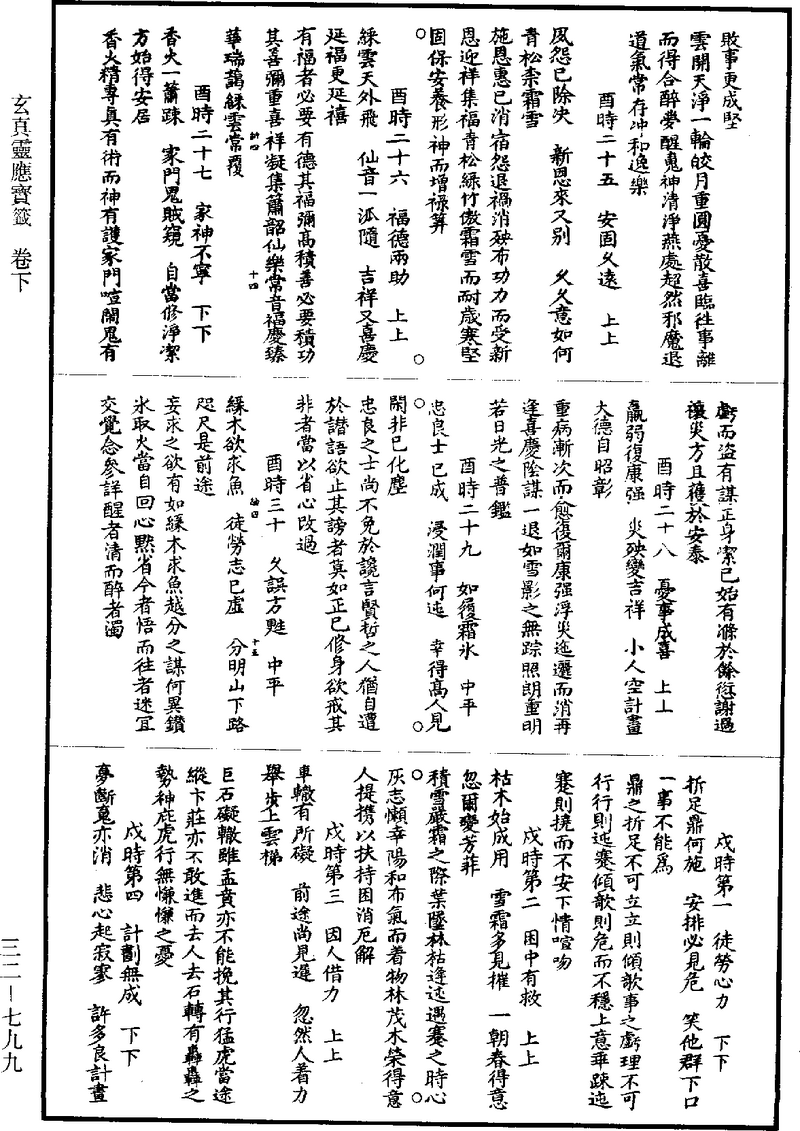 敗事更成堅
雲開天淨一輪皎月重圓憂散喜臨往事離
而得合醉夢醒䰟神清淨燕處超然邪魔退
道氣常存冲和逸樂
酉時二十五 安固久遠 上上
夙怨已除決 新恩來又別 久久意如何
青松柰霜雪
施恩惠已消宿怨退禍消殃布功力而受新
恩迎祥集福青松綠竹傲霜雪而耐歲寒堅
固保安養形神而增祿筭
酉時二十六 福德兩助 上上
綵雲天外飛 仙音一派隨 吉祥又喜慶
延福更延禧
有福者必要有德其福彌高積善必要積功
其喜彌重喜祥凝集簫韶仙樂常音福慶臻
華瑞靄綵雲常覆
酉時二十七 家神不寧 下下
香火一蕭踈 家門鬼賊窺 自當修淨潔
方始得安居
香火精專真有術而神有護家門喧鬧鬼有
虧而盜有謀正身潔已始有滌於餘愆謝過
禳災方且獲於安泰
酉時二十八 憂事成喜 上上
羸弱復康强 災殃變吉祥 小人空計畫
大德自昭彰
重病漸次而愈復爾康强浮災迤邐而消再
逢喜慶陰謀一退如雪影之無踪照朗重明
若日光之普鑑
酉時二十九 如履霜氷 中平
忠良士已成 浸潤事何迍 幸得高人見
閑非已化塵
忠良之士尚不免於讒言賢哲之人猶自遭
於譖語欲止其謗者莫如正已修身欲戒其
非者當以省心改過
酉時三十 久誤方甦 中平
緣木欲求魚 徒勞志已虛 分明山下路
咫尺是前途
妄求之欲有如緣木求魚越分之謀何異鑽
氷取火當自回心黙省今者悟而往者迷冝
交覺念參詳醒者清而醉者濁
戌時第一 徒勞心力 下下
折足鼎何施 安排必見危 笑他群下口
一事不能爲
鼎之折足不可立立則傾欹事之虧理不可
行行則迍蹇傾欹則危而不穩上意乖踈迍
蹇則撓而不安下情喧吻
戌時第二 困中有救 上上
枯木始成用 雪霜多見摧 一朝春得意
忽爾變芳菲
積雪嚴霜之際葉墜林枯逢迍遇蹇之時心
灰志懶幸陽和布氣而着物林茂木榮得意
人提携以扶持困消厄解
戌時第三 因人借力 上上
車轍有所礙 前途尚見遲 忽然人着力
舉步上雲梯
巨石礙轍雖孟賁亦不能挽其行猛虎當途
縱卞莊亦不敢進而去人去石轉有轟轟之
勢神庇虎行無慊慊之憂
戌時第四 計劃無成 下下
夢斷䰟亦消 悲心起寂寥 許多良計畫
玄真靈應寶籤 卷下
三二—七九九